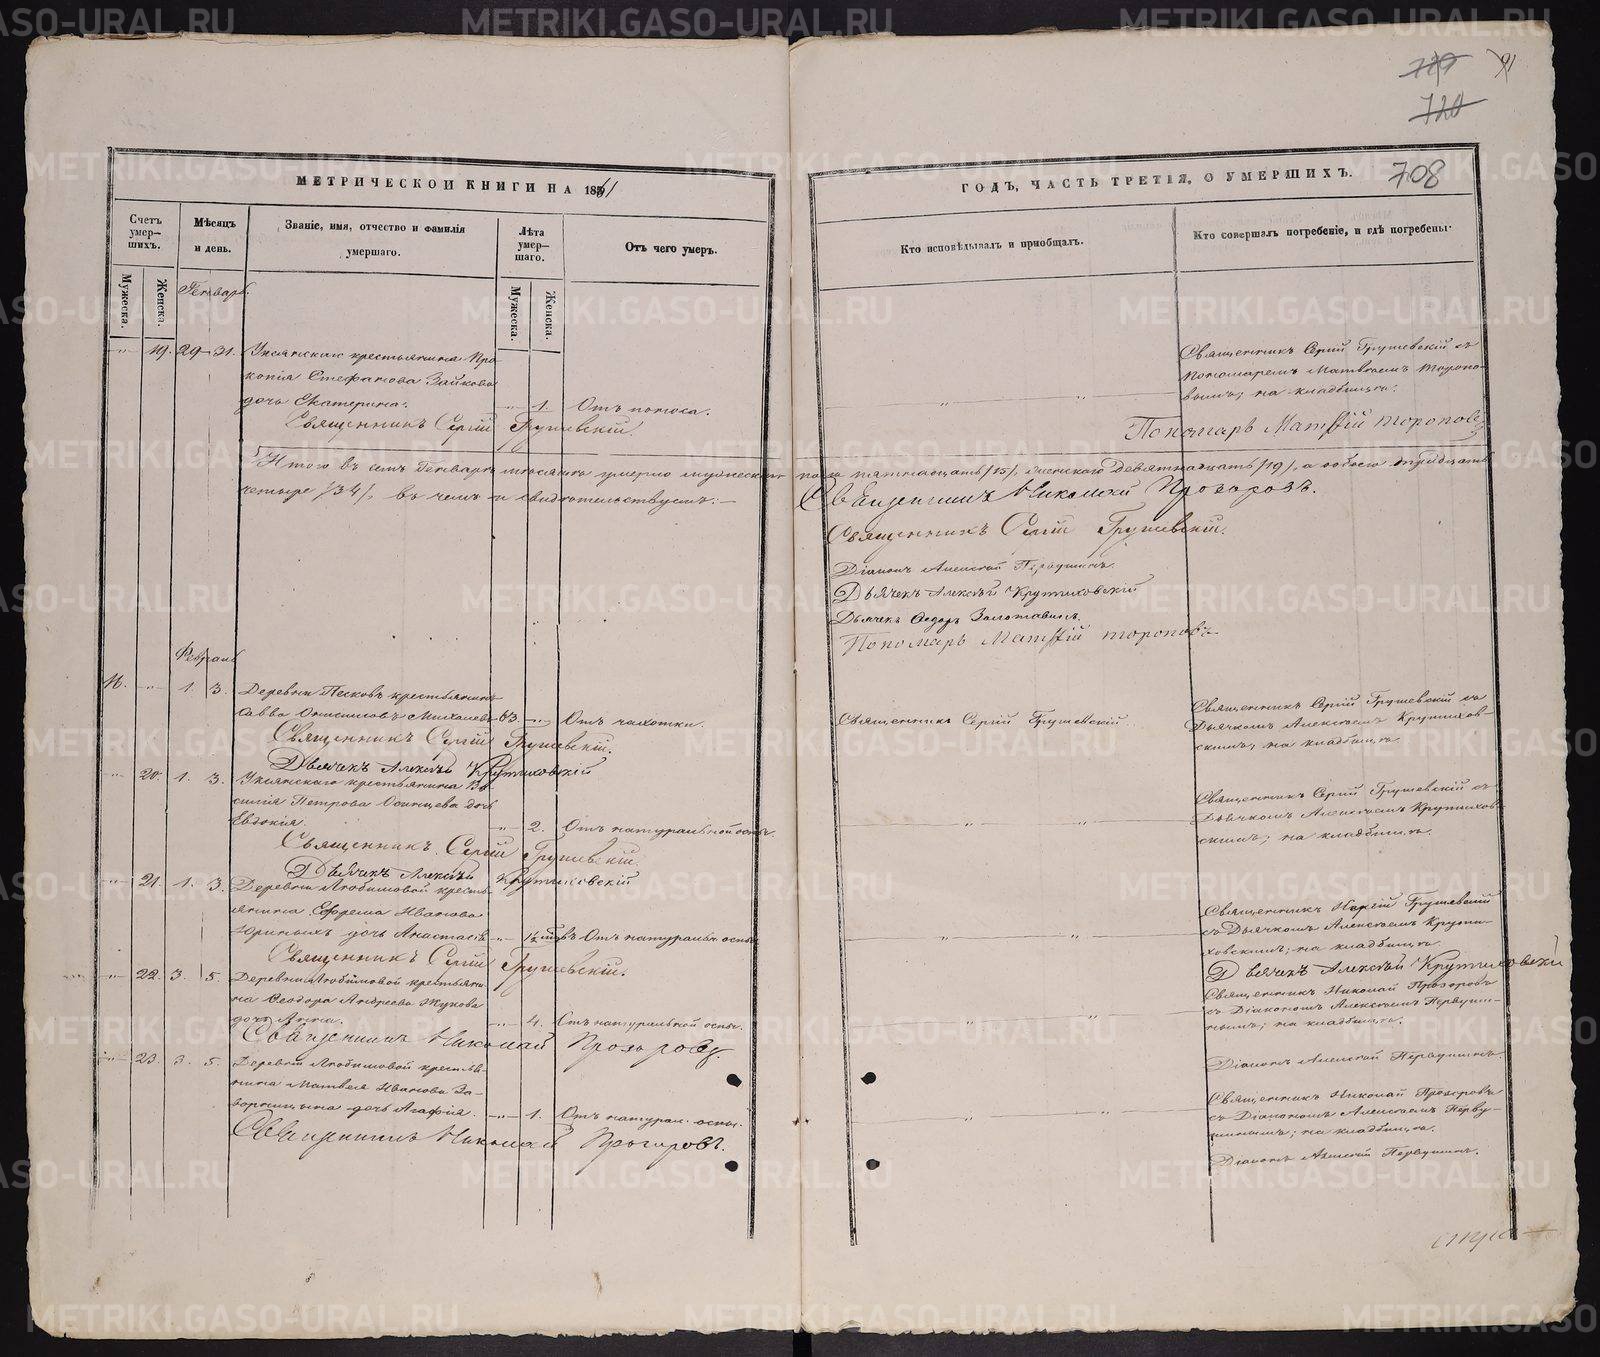 729 91
720
708
МЕТРИЧЕСКОЙ КНИГИ НА 1861
Счетъ умер-шихъ.
Мужеска.
Женска.
Мѣсяцъ и день.
Званіе, имя, отчество и фамилія умершаго.
Лѣта умер-шаго.
Мужеска.
Женска.
Отъ чего умеръ.
Генварь.
19. 29 31. Уксянскаго крестьянина Про-
копія Стефанова Зайкова
дочь Екатерина. 1. Отъ поноса.
Священникъ Сергій Грушевскій.
Итого въ семъ Генварѣ мѣсяцѣ умерло мужеска
четыре /34/, въ чемъ и свидѣтельствуемъ:
Февраль
16. 1. 3. Деревни Песковъ крестьянинъ
Савва Онисимовъ Михалевъ 63. Отъ чахотки.
Священникъ Сергій Грушевскій.
Дьячекъ Алексѣй Крутиховскій
20. 1. 3. Уксянскаго крестьянина Ва-
силія Петрова Осинцева дочь
Евдокія. 2. Отъ натуральной оспы.
Священникъ Сергій Грушевскій.
Дьячекъ Алексѣй Крутиховскій
21. 1. 3. Деревни Любимовой кресть-
янина Ефрема Иванова
Юриныхъ дочь Анастасія Отъ натуральн. оспы.
Священникъ Сергій Грушевскій.
22. 3. 5. Деревни Любимовой крестьяни-
на Ѳеодора Андреева Жукова
дочь Анна. 4. Отъ натуральной оспы.
Священникъ Николай Прозоровъ.
23. 3. 5. Деревни Любимовой крестья-
нина Матвея Иванова За-
ворницына дочь Агафія. 1. Отъ натурал. оспы.
Священникъ Николай Прозоровъ.
ГОДЪ, ЧАСТЬ ТРЕТІЯ, О УМЕРШИХЪ.
Кто исповѣдывалъ и пріобщалъ.
Кто совершалъ погребеніе, и гдѣ погребены.
Священникъ Сергій Грушевскій съ
Пономаремъ Матвѣемъ Торопо-
вымъ; на кладбищѣ.
Пономарь Матѳій Тороповъ
пола пятнадцать /15/, женскаго девятнадцать /19/, а обоего тридцать
Священникъ Николай Прозоровъ.
Священникъ Сергій Грушевскій.
Діаконъ Алексѣй Первушинъ.
Дьячекъ Алексѣй Крутиховскій
Дьячекъ Ѳедоръ Золотавинъ.
Пономарь Матѳій Тороповъ
Священникъ Сергій Грушевскій.
Священникъ Сергій Грушевскій съ
Дьячкомъ Алексѣемъ Крутихов-
скимъ; на кладбищѣ
Священникъ Сергій Грушевскій съ
Дьячкомъ Алексѣемъ Крутихов-
скимъ; на кладбищѣ.
Священникъ Сергій Грушевскій
съ Дьячкомъ Алексѣемъ Крути-
ховскимъ; на кладбищѣ.
Дьячекъ Алексѣй Крутиховскій
Священникъ Николай Прозоровъ
съ Діакономъ Алексѣемъ Первуши-
нымъ; на кладбищѣ.
Діаконъ Алексѣй Первушинъ.
Священникъ Николай Прозоровъ
съ Діакономъ Алексѣемъ Перву-
шинымъ; на кладбищѣ.
Діаконъ Алексѣй Первушинъ.
METRIKI.GASO-URAL.RU